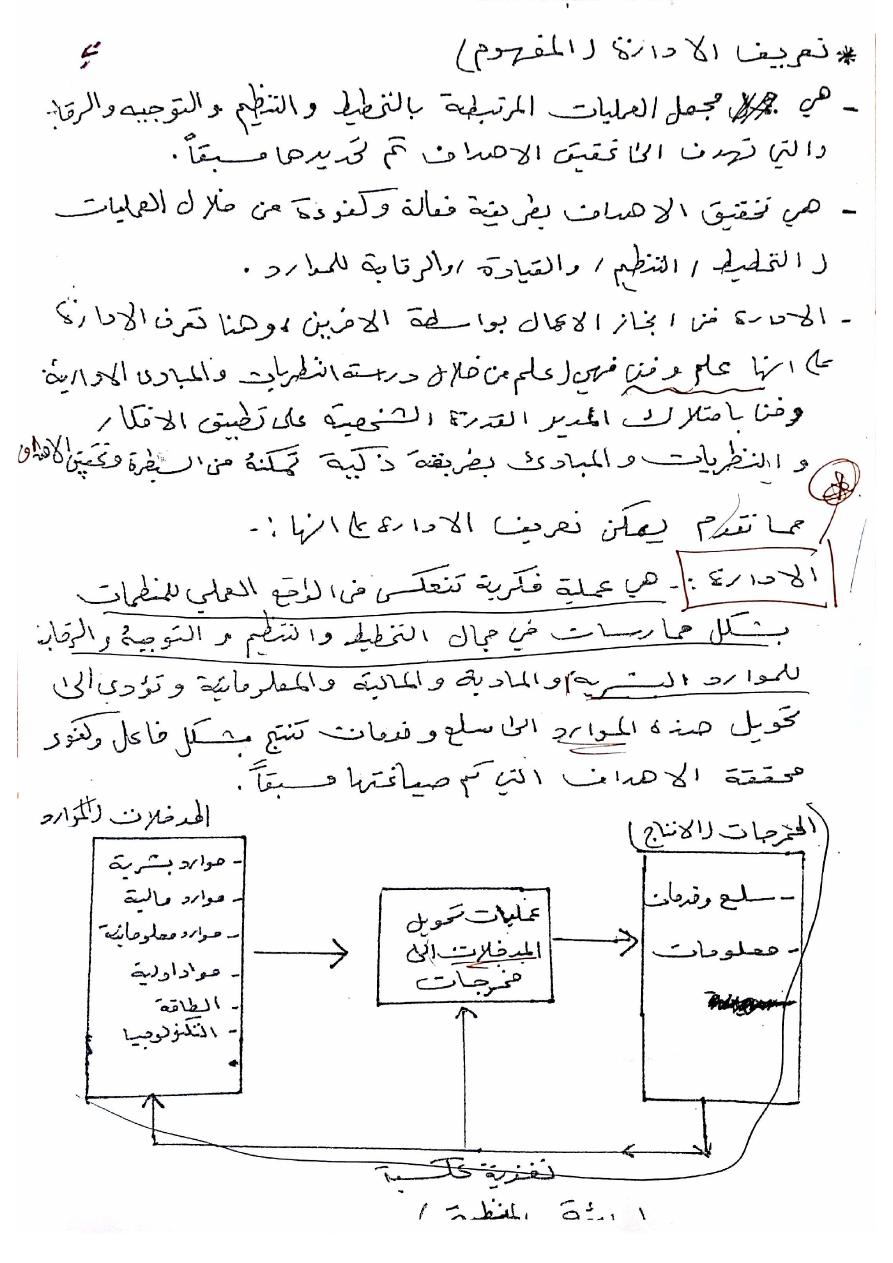 * تعريف الادارة (المفهوم)
- هي مجمل العمليات المرتبطة بالتخطيط والتنظيم والتوجيه والرقابة
والتي تهدف الى تحقيق الاهداف تم تحديدها مسبقاً.
- هي تحقيق الاهداف بطريقة فعالة وكفوءة من خلال العمليات
( التخطيط / التنظيم / والقيادة / والرقابة للموارد .
- الادارة فن انجاز الاعمال بواسطة الاخرين ، وهنا تعرف الادارة
على انها علم وفن فهي ( علم من خلال دراسة النظريات والمبادئ الادارية
وفن بامتلاك المدير القدرة الشخصية على تطبيق الافكار
والنظريات والمبادئ بطريقة ذكية تمكنه من السيطرة وتحقيق الاهداف
مما تقدم يمكن تعريف الادارة على انها :-
الادارة :- هي عملية فكرية تنعكس في الواقع العملي للمنظمات
بشكل ممارسات في مجال التخطيط والتنظيم والتوجية والرقابة
للموارد البشرية والمادية والمالية والمعلوماتية وتؤدي الى
تحويل هذه الموارد الى سلع وخدمات تنتج بشكل فاعل وكفوء
محققة الاهداف التي تم صياغتها مسبقاً.
المخرجات (الانتاج)
- سلع وخدمات
- معلومات
عمليات تحويل
المدخلات الى
مخرجات
المدخلات (الموارد
- موارد بشرية
- موارد مالية
- موارد معلوماتية
- مواد اولية
- الطاقة
- التكنولوجيا
تغذية عكسية